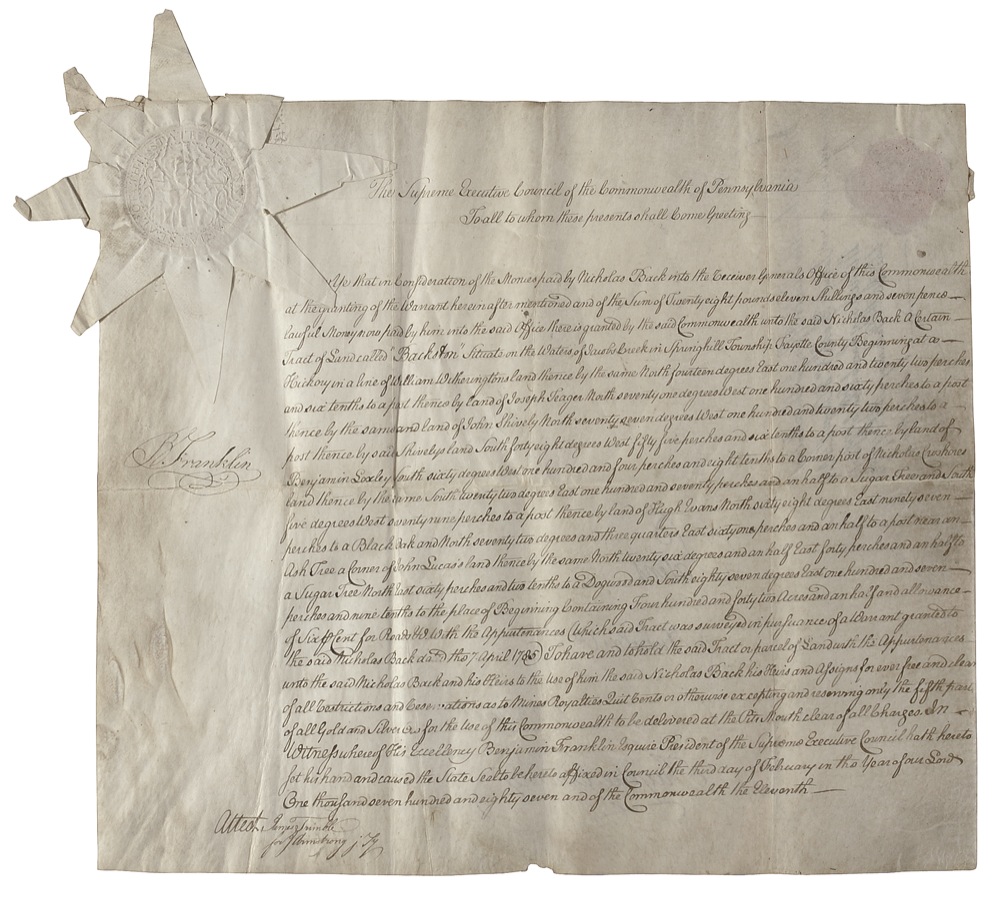 The Supreme Executive Council of the Commonwealth of Pennsylvania
To all to whom these presents shall Come Greeting
Ye that in Consideration of the Monies paid by Nicholas Back into the Receiver Generals Office of this Commonwealth
at the granting of the Warrant herein after mentioned and of the Sum of Twenty eight pounds eleven Shillings and seven pence
lawful Money now paid by him into the said Office there is granted by the said Commonwealth unto the said Nicholas Back A Certain
Tract of Land called "Backs Situate on the Waters of Jacobs Creek in Springhill Township Fayette County Beginning at a
Hickory in a line of William Witheringtons land thence by the same North fourteen degrees East one hundred and twenty two perches
and six tenths to a post thence by land of Joseph Seager North seventy one degrees West one hundred and sixty perches to a post
thence by the same and land of John Shively North seventy seven degrees West one hundred and twenty two perches to a
post thence by said Shivelys land South forty eight degrees West fifty five perches and six tenths to a post thence by land of
Benjamin Loxley South sixty degrees West one hundred and four perches and eight tenths to a Corner post of Nicholas
land thence by the same South twenty two degrees East one hundred and seventy perches and an half to a Sugar Tree and South
five degrees West seventy nine perches to a post thence by land of Hugh Evans North sixty eight degrees East ninety seven
perches to a Black Oak and North seventy two degrees and three quarters East sixty one perches and an half to a post near an
Ash Tree a Corner of John Lucas's land thence by the same North twenty six degrees and an half East forty perches and an half to
a Sugar Tree North East sixty perches and two tenths to a Dogwood and South eighty seven degrees East one hundred and seven
perches and nine tenths to the place of Beginning Containing Four hundred and forty two Acres and an half and allowance
of Six P Cent for Roads &c With the Appurtenances (Which said Tract was surveyed in persuance of a Warrant granted to
the said Nicholas Back dated the 7 April 1785) To have and to hold the said Tract or parcel of Land with the Appurtenances
unto the said Nicholas Back and his Heirs to the Use of him the said Nicholas Back his Heirs and Assigns for ever free and clear
of all Restrictions and Reservations as to Mines Royalties Quit Rents or otherwise excepting and reserving only the fifth part
of all Gold and Silver Ore for the Use of this Commonwealth to be delivered at the Pits Mouth clear of all Charges. In
Witness whereof His Excellency Benjamin Franklin Esquire President of the Supreme Executive Council hath hereto
set his hand and caused the State Seal to be hereto affixed in Council the third day of February in the Year of our Lord
One thousand seven hundred and eighty seven and of the Commonwealth the Eleventh
B. Franklin
Attest. James Trimble
for J Armstrong jr. Sy